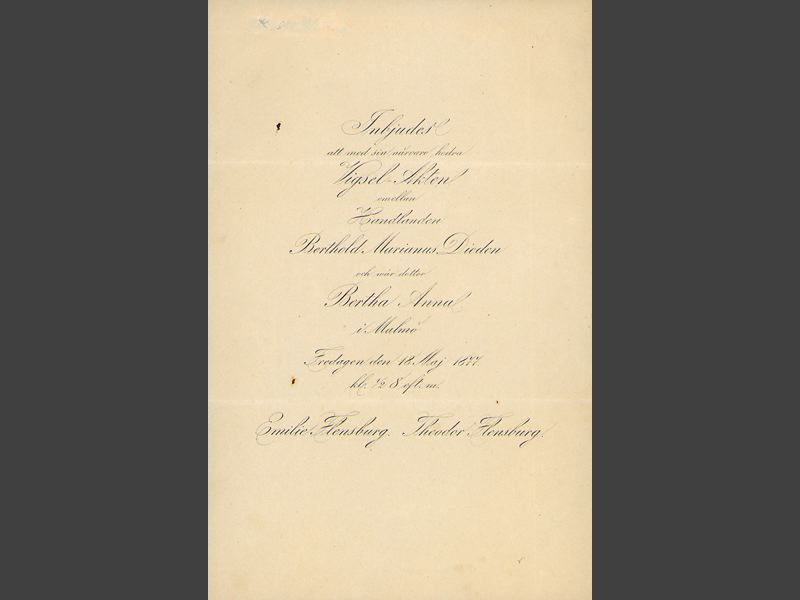 Inbjudes
att med sin närvaro hedra
Vigsel-Akten
emellan
Handlanden
Berthold Marianus Dieden
och vår dotter
Bertha Anna
i Malmö
Fredagen den 18 Maj 1877.
kl. ½ 8 eft. m.
Emilie Flensburg. Theodor Flensburg.